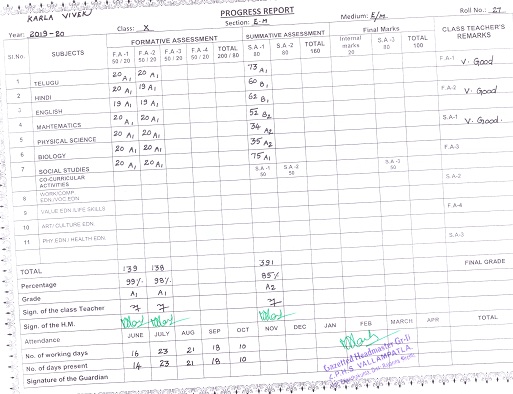 PROGRESS REPORT
KARLA VIVEK
Class: X Section: E-M Medium: E/M Roll No.: 27
Year: 2019-20
Sl.No. SUBJECTS FORMATIVE ASSESSMENT SUMMATIVE ASSESSMENT Final Marks CLASS TEACHER'S REMARKS
F.A-1 50 / 20 F.A-2 50 / 20 F.A-3 50 / 20 F.A-4 50 / 20 TOTAL 200 / 80 S.A-1 80 S.A-2 80 TOTAL 160 Internal marks 20 S.A-2 80 TOTAL 100
1 TELUGU 20 A1 20 A1 73 A1 F.A-1 V. Good
2 HINDI 20 A1 19 A1 60 B1 F.A-2 V. Good
3 ENGLISH 19 A1 19 A1 62 B1
4 MAHTEMATICS 20 A1 20 A1 52 B2 S.A-1 V. Good
5 PHYSICAL SCIENCE 20 A1 20 A1 34 A2
6 BIOLOGY 20 A1 20 A1 35 A2 F.A-3
7 SOCIAL STUDIES 20 A1 20 A1 75 A1
CO-CURRICULAR ACTIVITIES S.A-1 50 S.A-2 50 S.A-3 50 S.A-2
8 WORK/COMP. EDN./VOC.EDN
9 VALUE EDN./LIFE SKILLS F.A-4
10 ART/CULTURE EDN
11 PHY EDN / HEALTH EDN. S.A-3
TOTAL 139 138 391 FINAL GRADE
Percentage 99% 98% 85%
Grade A1 A1 A2
Sign. of the class Teacher
Sign. of the H.M.
Attendance JUNE JULY AUG SEP OCT NOV DEC JAN FEB MARCH APR TOTAL
No. of working days 16 23 21 18 10
No. of days present 14 23 21 18 10
Signature of the Guardian
Gazetted Headmaster Gr-II
Z.P.H.S VALLAMPATLA